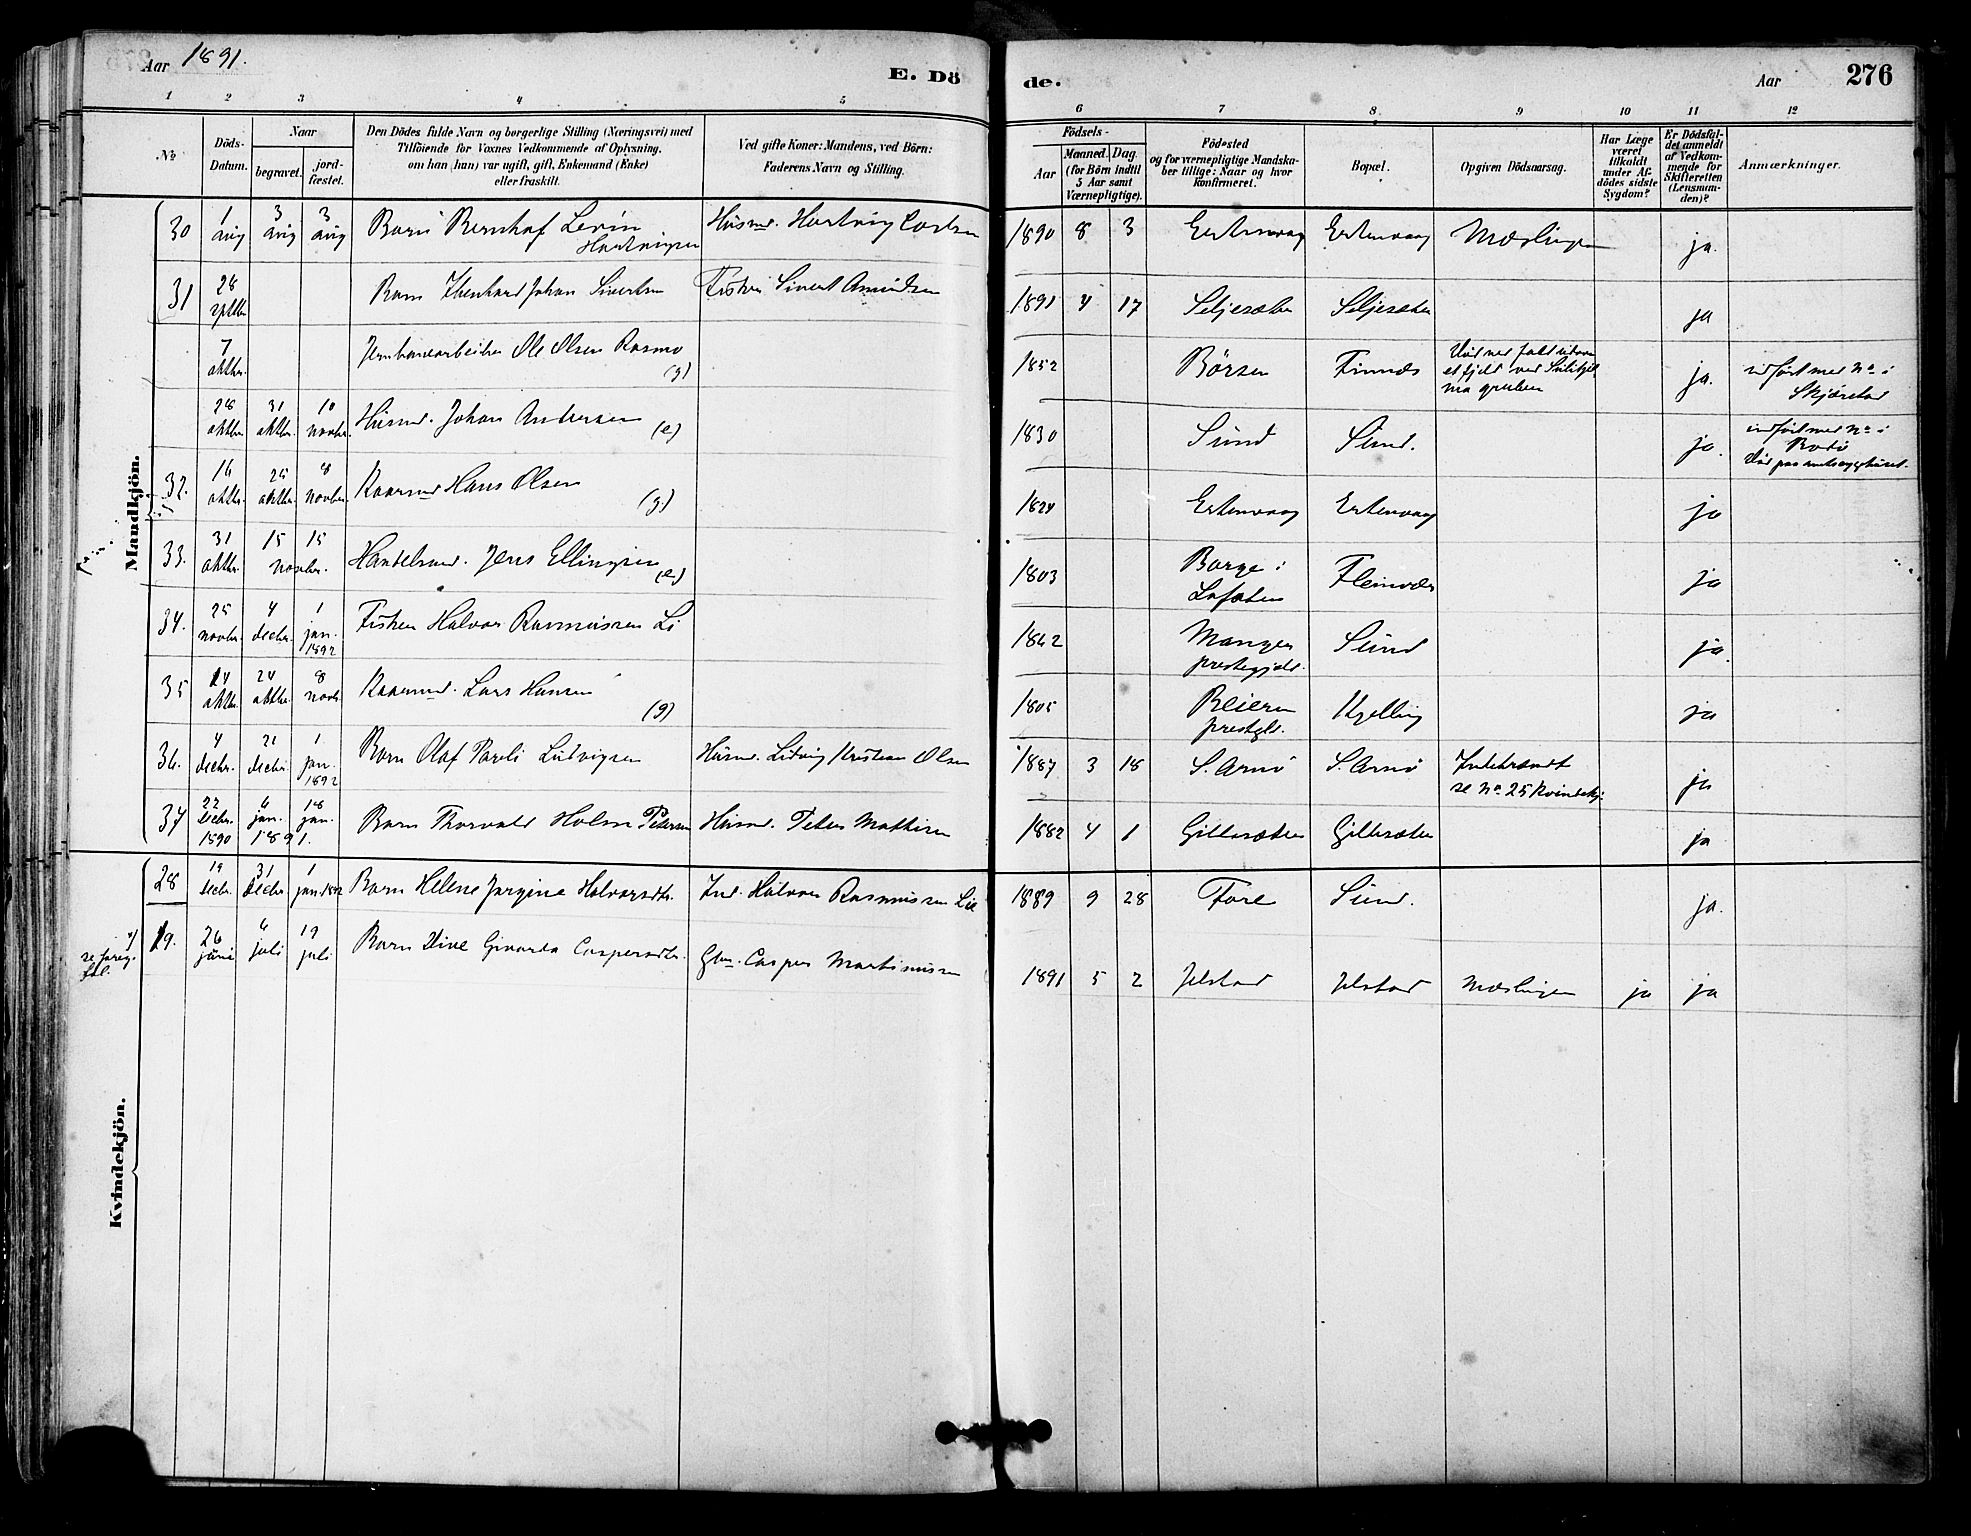 Aar 1891.
E. Dö
de.
Aar
276
1 2 3 4 5 6 7 8 9 10 11 12
No
Döds-
Datum.
Naar
begravet.
jord-
fæstet.
Den Dödes fulde Navn og borgerlige Stilling (Næringsvei) med
Tilföiende for Voxnes Vedkommende af Oplysning,
om han (hun) var ugift, gift, Enkemand (Enke)
eller fraskilt.
Ved gifte Koner: Mandens, ved Börn:
Faderens Navn og Stilling.
Födsels-
Aar
Maaned. Dag.
(for Börn indtil
5 Aar samt
Værnepligtige).
Födested
og for værnepligtige Mandska-
ber tillige: Naar og hvor
konfirmeret.
Bopæl.
Opgiven Dödsaarsag.
Har Læge
været
tilkaldt
under Af-
dödes sidste
Sygdom?
Er Dödsfal-
det anmeldt
af Vedkom-
mende for
Skifteretten
(Lensman-
den)?
Anmærkninger.
Mandkjön.
30 1 aug 3 aug 3 aug Barn Bernhof Levin
Hartvigsen Husmd. Hartvig 1890 8 3 Ertenvaag Ertenvaag Mæslinger ja.
31 28 Barn Johan Sivertsen Fisker Sivert Amundsen 1891 4 17 Seljesæter Seljesæter ja
7 oktbr. Jernbanearbeider Ole Olsen Rasmo
(g) 1852 Börsen Finnæs et fjeld ved Sulitjel
ma gruber ja. indfört med No i
Skjerstad
28 oktbr. 31 oktbr. 10 novbr. Husmd. Johan Andersen (e) 1830 Sund Sund. ja. indfört med No i
Bodö
32. 16 oktbr. 25 oktbr. 8 novbr. Kaarmd Hans Olsen (g.) 1824 Ertenvaag Ertenvaag ja
33. 31 oktbr. 15 15 novbr. Handelsmd. Jens Ellingsen (e.) 1803 Borge i
Lofoten Fleinvær ja
34. 25 novbr. 4 decbr. 1 jan. 1892 Fisker Halvor Rasmussen Li 1862 Manger
prestegjeld. Sund ja.
35 14 oktbr. 24 oktbr. 8 novb. Kaarmd. Lars Hansen (g) 1805 Beiern
prestgld. Kjelling ja
36. 4 decbr. 21 decbr. 1 jan. 1892 Barn Olaf Pareli Ludvigsen Husmd. Ludvig Kristian Olsen 1887 3 18 S. Arnö S. Arnö
se No 25 Kvindekj. ja
37 22 decbr. 1890 6 jan. 18 jan. 1891. Barn Thorvald Holm Petersen Husmd. Peter Mathisen 1882 4 1 Gillesæter Gillesæter ja
Kvindekjön.
28 19 decbr. 31 decbr 1 jan 1892 Barn Helene Jørgine Halvorsdtr. Ind. Halvor Rasmussen Lie 1889 9 28 Fore Sund. ja.
29. 26 juni 6 juli 19 juli Barn Dine Caspersdtr. Gbr. Casper Martinussen 1891 5 2 Jelstad Jelstad Mæslinger ja ja